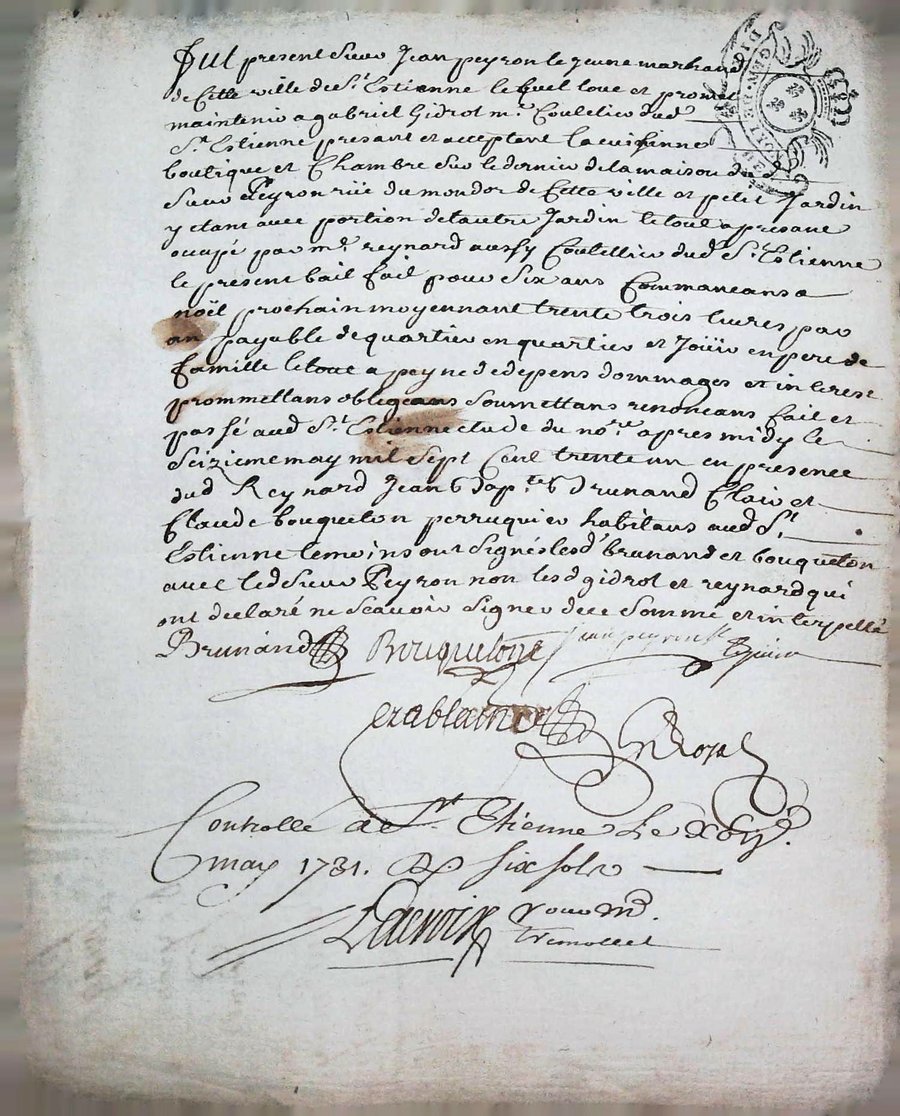 Fut present sieur Jean peyron le jeune marchand
de Cette ville de St Estienne lequel loue et promet
maintenir a gabriel Gidrot me Coutelier dud
St Estienne presant et acceptant la cuisinne
boutique et Chambre sur le dernier de la maison du
sieur Peyron rüe du mondor de Cette ville et petit Jardin
y etant avec portion de lautre Jardin le tout apresant
ocupé par me reynard aussy Coutellier dud St Estienne
le present bail fait pour six ans Commancans a
noël prochain moyennant trente trois livres par
an payable de quartier en quartier et Joüir en pere de
famille le tout a peyne de depens dommages et interest
promettans obligeans soumettans renonceans fait et
passé aud St Estienne etude du nore apres midy le
seizieme may mil sept Cent trente un en presence
dud Reynard Jean bapte brunand Clair et
Claude bouqueton perruquier habitans aud St
Estienne temoins ont signés lesd brunand et bouqueton
avec led sieur Peyron non lesd gidrot et reynard qui
ont declaré ne scavoir signer de ce sommé et interpellé
Brunand Bouqueton Jean peyron
Controllé a St Etienne Le
may 1731. six sols
Delacroix pour Mr
tremollet